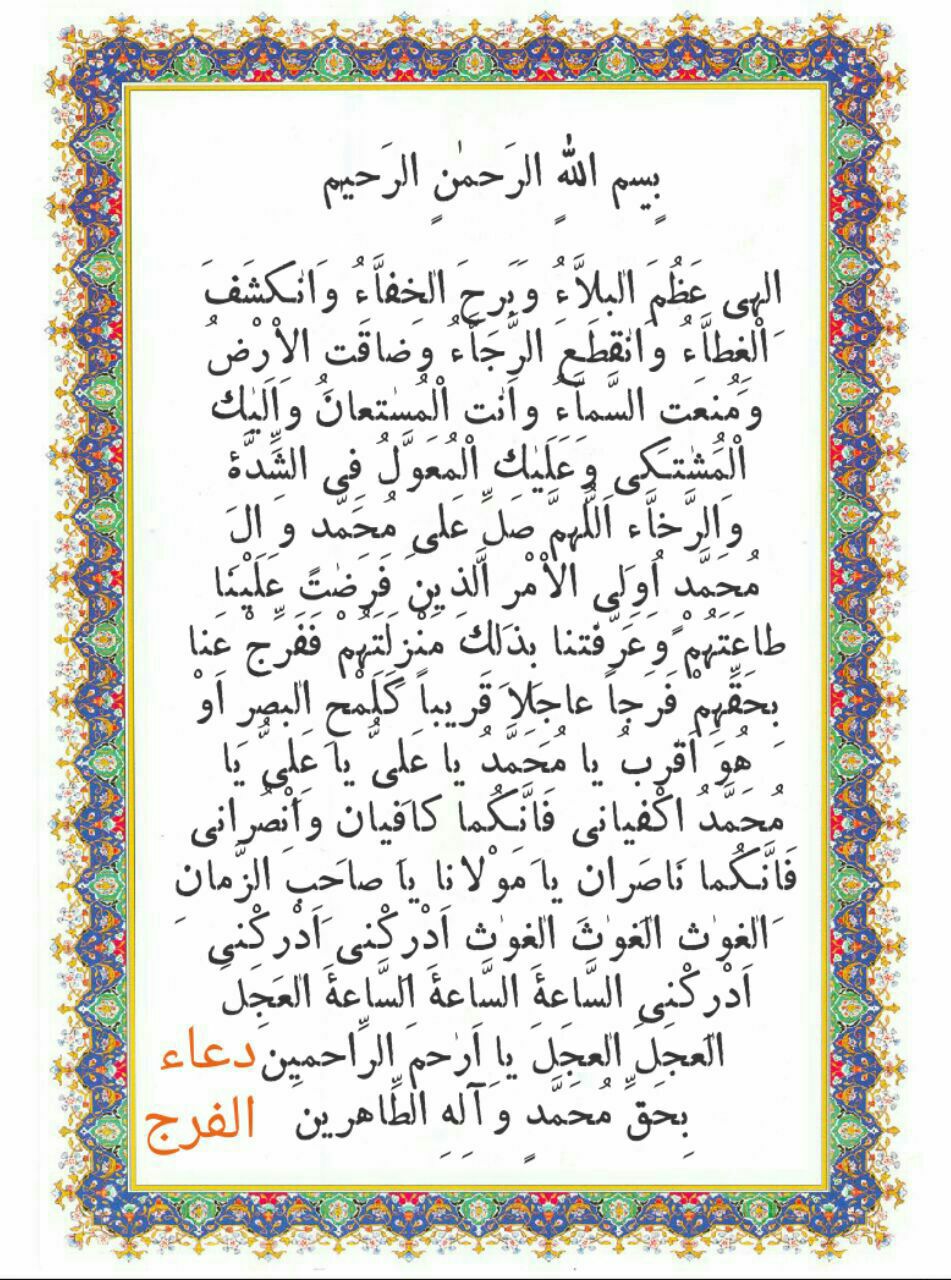 بِسم اللهِ الرَحمٰنِ الرَحیم
الهی عَظُمَ الْبَلاَّءُ وَبَرِحَ الْخِفاَّءُ وَانْکَشَفَ
الْغِطاَّءُ وَانْقَطَعَ الرَّجاَّءُ وَضاقَتِ الاْرْضُ
وَمُنِعَتِ السَّماَّءُ وَاَنْتَ الْمُسْتَعانُ وَاِلَیْکَ
الْمُشْتَکی وَعَلَیْکَ الْمُعَوَّلُ فِی الشِّدَّةِ
وَالرَّخاَّءِ اَللّهُمَّ صَلِّ عَلی مُحَمَّدٍ وَ الِ
مُحَمَّدٍ اُولِی الاْمْرِ الَّذینَ فَرَضْتَ عَلَیْنا
طاعَتَهُمْ وَعَرَّفْتَنا بِذلِکَ مَنْزِلَتَهُمْ فَفَرِّجْ عَنا
بِحَقِّهِمْ فَرَجاً عاجِلاً قَریباً کَلَمْحِ الْبَصَرِ اَوْ
هُوَ اَقْرَبُ یا مُحَمَّدُ یا عَلِیُّ یا عَلِیُّ یا
مُحَمَّدُ اکْفِیانی فَاِنَّکُما کافِیانِ وَانْصُرانی
فَاِنَّکُما ناصِرانِ یا مَوْلانا یا صاحِبَ الزَّمانِ
الْغَوْثَ الْغَوْثَ الْغَوْثَ اَدْرِکْنی اَدْرِکْنی
اَدْرِکْنی السَّاعَةَ السَّاعَةَ السَّاعَةَ الْعَجَلَ
الْعَجَلَ الْعَجَلَ یا اَرْحَمَ الرّاحِمینَ
بِحَقِّ مُحَمَّدٍ وَ آلِهِ الطّاهِرینَ
دعاء
الفرج